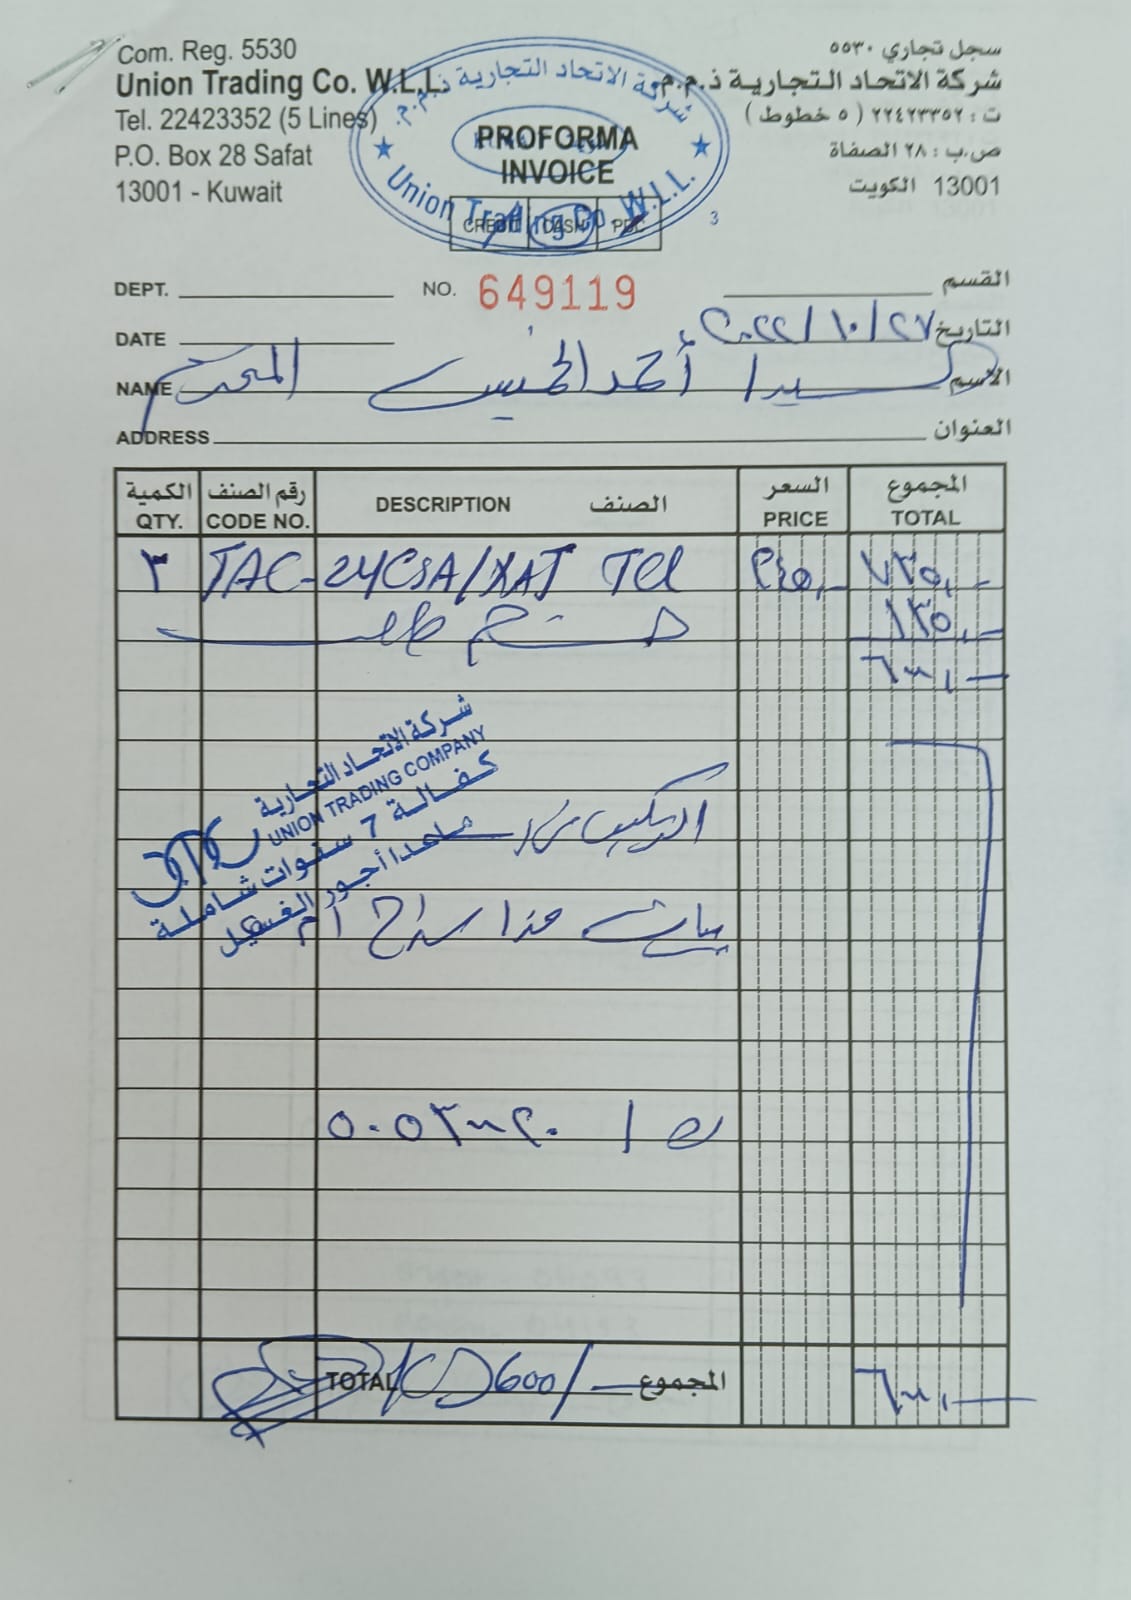 Com. Reg. 5530
سجل تجاري ٥٥٣٠
Union Trading Co. W.L.L.
شركة الاتحاد التجارية ذ.م.م.
Tel. 22423352 (5 Lines)
ت : ٢٢٤٢٣٣٥٢ ( ٥ خطوط )
P.O. Box 28 Safat
ص.ب : ٢٨ الصفاة
13001 - Kuwait
13001 الكويت
شركة الاتحاد التجارية ذ.م.م.
PROFORMA
INVOICE
Union Trading Co. W.L.L.
CREDIT CASH PDC
DEPT. NO. 649119 القسم
DATE ٢٠٢٢/١٠/٢٧ التاريخ
NAME أحمد المحترم الاسم
ADDRESS العنوان
الكمية رقم الصنف الصنف السعر المجموع
QTY. CODE NO. DESCRIPTION PRICE TOTAL
٣ TAC-24CSA/XAJ TCL ٢٤٥,- ٧٣٥,-
خصم خاص ١٣٥,-
٦٠٠,-
شركة الاتحاد التجارية
UNION TRADING COMPANY
كفالة 7 سنوات شاملة
ماعدا أجور الغسيل
التركيب
هذا
TOTAL KD 600/- المجموع ٦٠٠,-